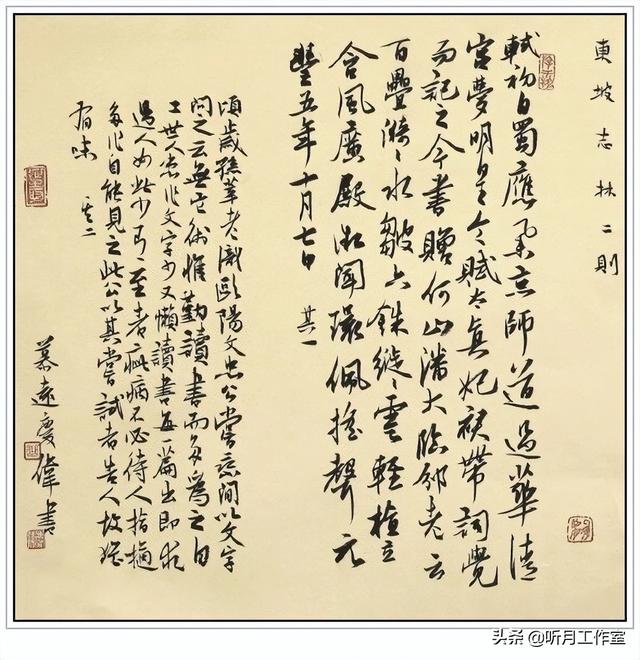 東坡志林二則
軾初自蜀應舉京師道過華清
宮夢明皇令賦太真妃裙帶詞覺
而記之今書贈何山潘大臨邠老云
百疊漪〻水皺六銖縰〻雲輕植立
含風廣殿微聞環佩搖聲元
豐五年十月七日 其一
頃歲孫莘老識歐陽文忠公嘗乘間以文字
問之云無它術惟勤讀書而多為之自
工世人患作文字少又懶讀書每一篇出即求
過人如此少有至者疵病不必待人指擿
多作自能見之此公以其嘗試者告人故尤
有味 其二
慕遠慶偉書
头条 @听月工作室